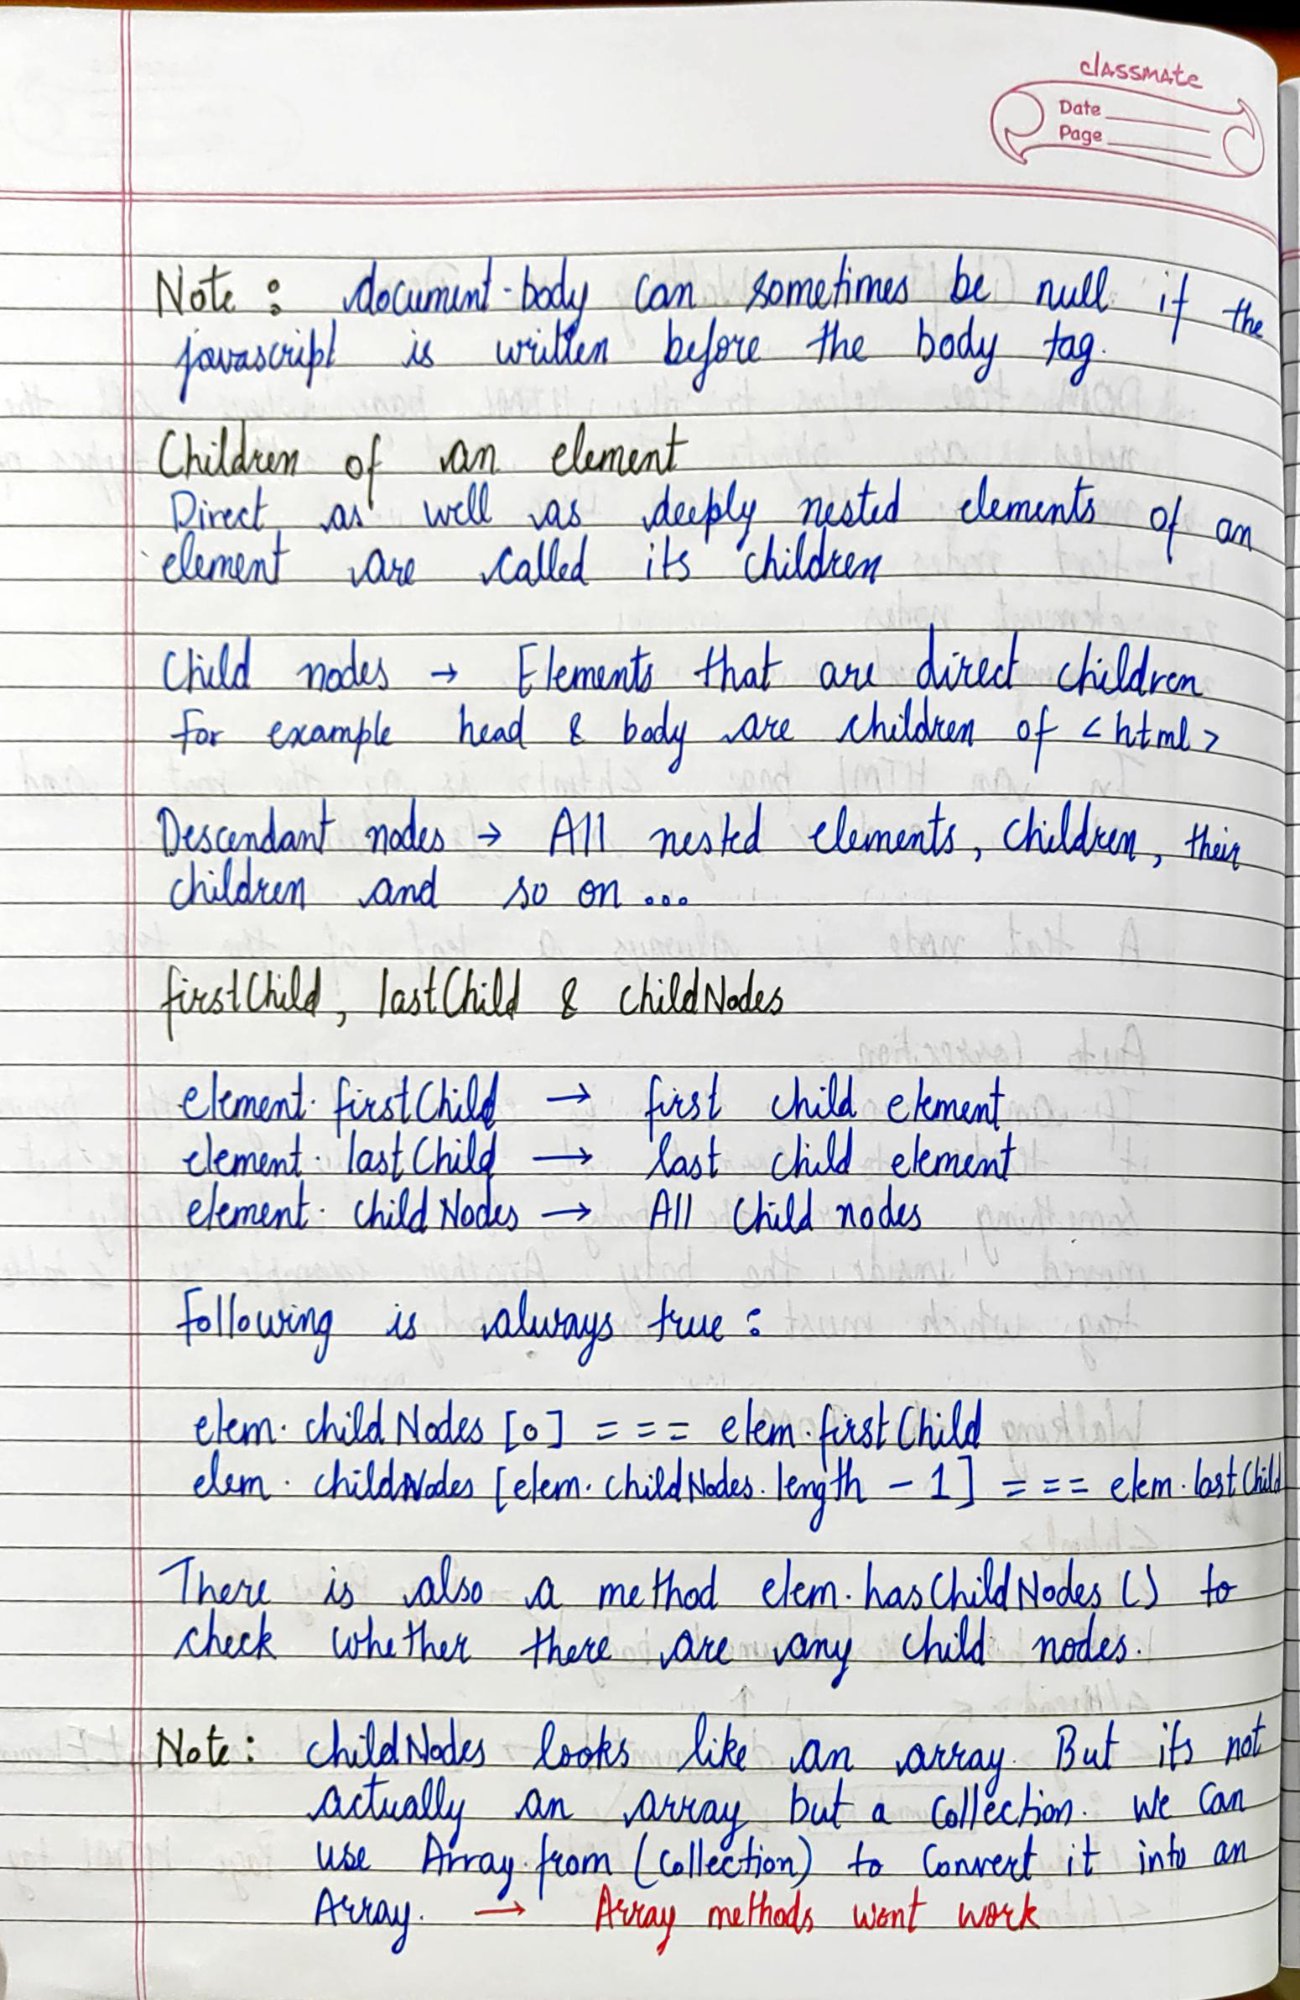 classmate
Date
Page
Note : document.body can sometimes be null if the
javascript is written before the body tag.
Children of an element
Direct as well as deeply nested elements of an
element are called its children
Child nodes → Elements that are direct children
For example head & body are children of <html>
Descendant nodes → All nested elements, children, their
children and so on ...
firstChild, lastChild & childNodes
element.firstChild → first child element
element.lastChild → last child element
element.childNodes → All child nodes
Following is always true :
elem.childNodes [0] === elem.firstChild
elem.childNodes [elem.childNodes.length - 1] === elem.lastChild
There is also a method elem.hasChildNodes () to
check whether there are any child nodes.
Note : childNodes looks like an array. But its not
actually an array but a collection. We can
use Array.from (collection) to convert it into an
Array. → Array methods wont work